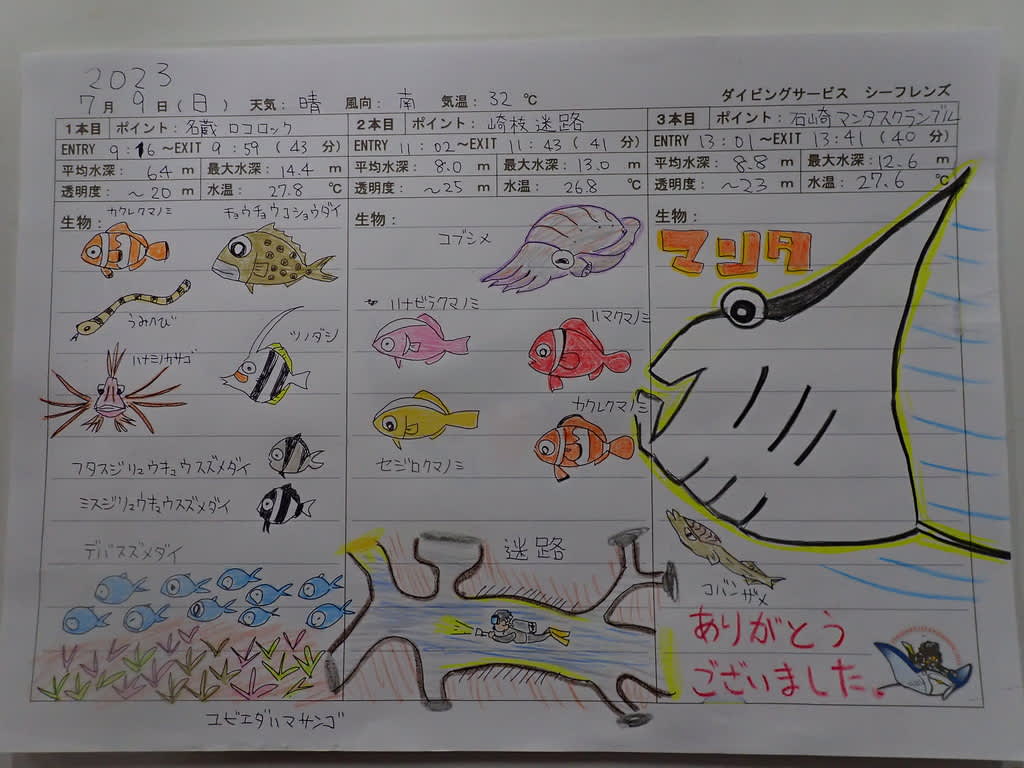 2023
7月 9日(日) 天気: 晴 風向: 南 気温: 32 ℃
ダイビングサービス シーフレンズ
1本目 ポイント: 名蔵 ロコロック
ENTRY 9:16 ~EXIT 9:59 (43 分)
平均水深: 6.4 m 最大水深: 14.4 m
透明度: ~20 m 水温: 27.8 ℃
生物:
カクレクマノミ
チョウチョウコショウダイ
うみへび
ツノダシ
ハナミノカサゴ
フタスジリュウキュウスズメダイ
ミスジリュウキュウスズメダイ
デバスズメダイ
ユビエダハマサンゴ
2本目 ポイント: 崎枝 迷路
ENTRY 11:02 ~EXIT 11:43 (41 分)
平均水深: 8.0 m 最大水深: 13.0 m
透明度: ~25 m 水温: 26.8 ℃
生物:
コブシメ
ハナビラクマノミ
ハマクマノミ
カクレクマノミ
セジロクマノミ
迷路
3本目 ポイント: 石崎 マンタスクランブル
ENTRY 13:01 ~EXIT 13:41 (40 分)
平均水深: 8.8 m 最大水深: 12.6 m
透明度: ~23 m 水温: 27.6 ℃
生物:
マンタ
コバンザメ
ありがとう
ございました。